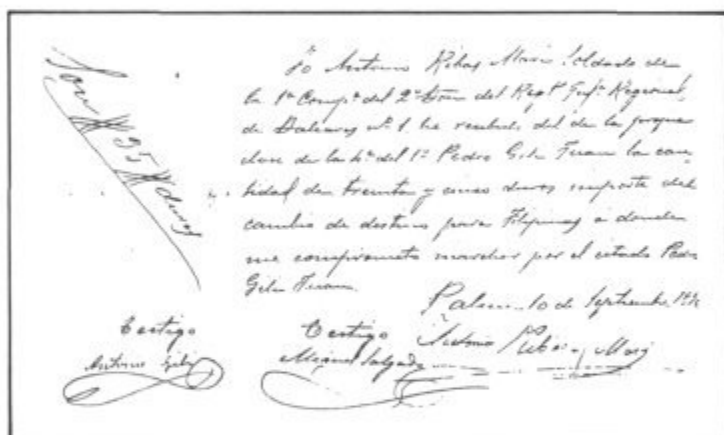 Yo Antonio Ribas Mari Soldado de
la 1ª Compª del 2º Bon del Regtº Infª Regional
de Baleares nº 1, he recibido del de la propia
clase de la 4ª del 1º Pedro Gili Truan la can-
tidad de treinta y cinco duros importe del
cambio de destino para Filipinas a donde
me comprometo marchar por el citado Pedro
Gili
Palma 10 de Septiembre
Son 35 duros
Testigo
Antonio Gili
Testigo
Miguel Salgado
Antonio Ribas Mari